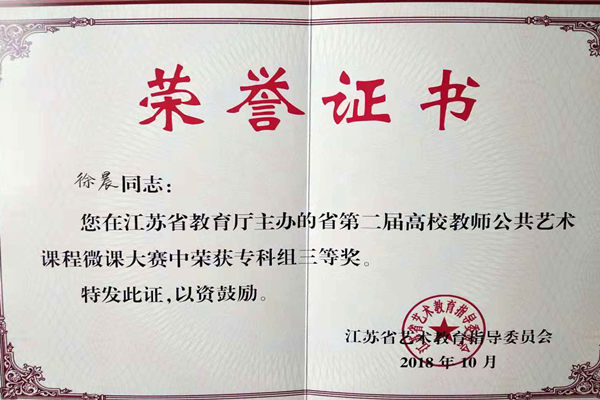 荣誉证书
徐晨同志：
您在江苏省教育厅主办的省第二届高校教师公共艺术
课程微课大赛中荣获专科组三等奖。
特发此证，以资鼓励。
江苏省艺术教育指导委员会
江苏省艺术教育指导委员会
2018 年 10 月